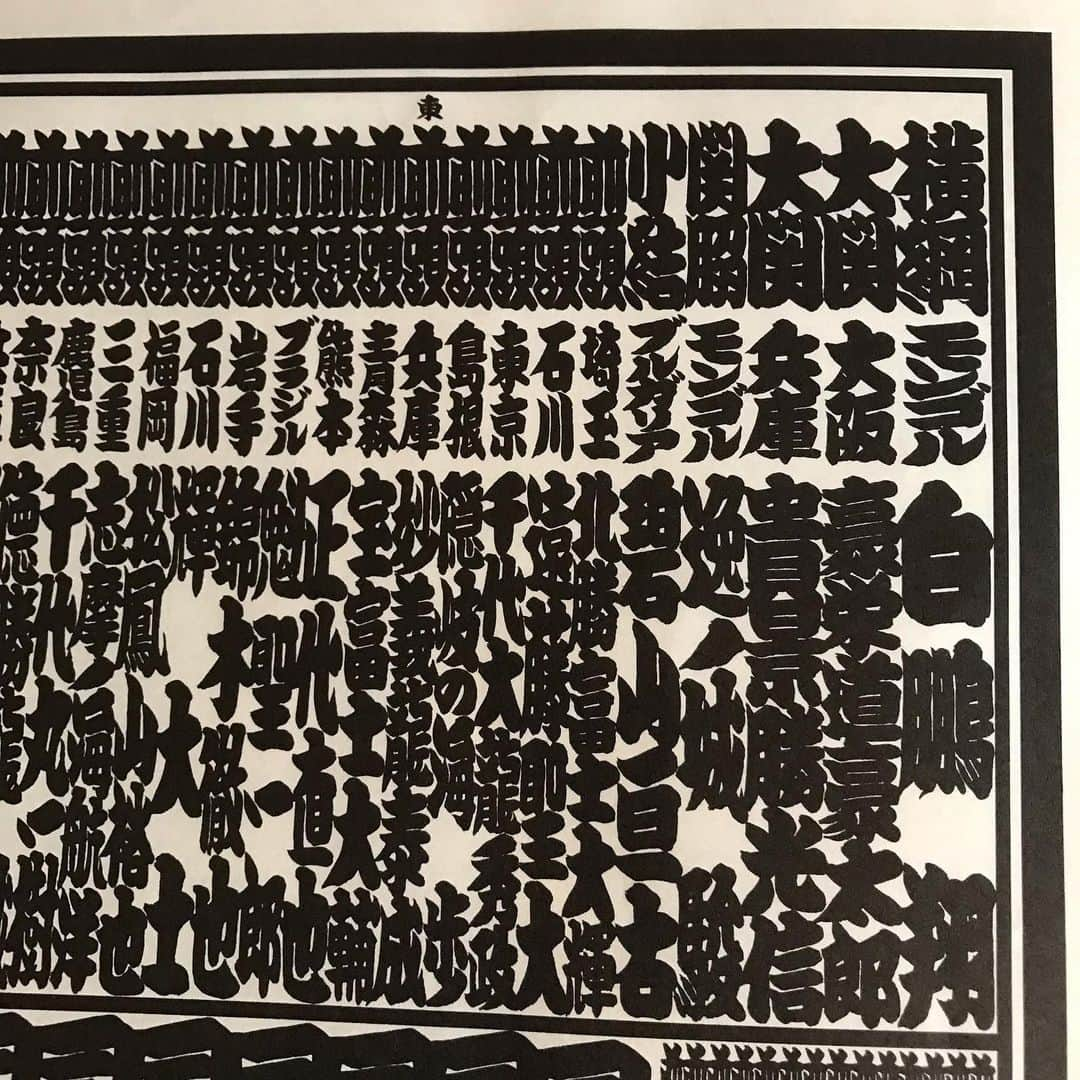 東
横綱 モンゴル 白鵬 翔
大関 大阪 豪栄道豪太郎
大関 兵庫 貴景勝光信
関脇 モンゴル 逸ノ城 駿
小結 ブルガリア 碧山亘右
前頭 埼玉 北勝富士大輝
前頭 石川 遠藤聖大
前頭 東京 千代大龍秀政
前頭 島根 隠岐の海 歩
前頭 兵庫 妙義龍泰成
前頭 青森 宝富士大輔
前頭 熊本 正代直也
前頭 ブラジル 魁聖一郎
前頭 岩手 錦木徹也
前頭 石川 輝 大士
前頭 福岡 松鳳山裕也
前頭 三重 志摩ノ海航洋
前頭 鹿児島 千代丸一樹
前頭 奈良 徳勝龍